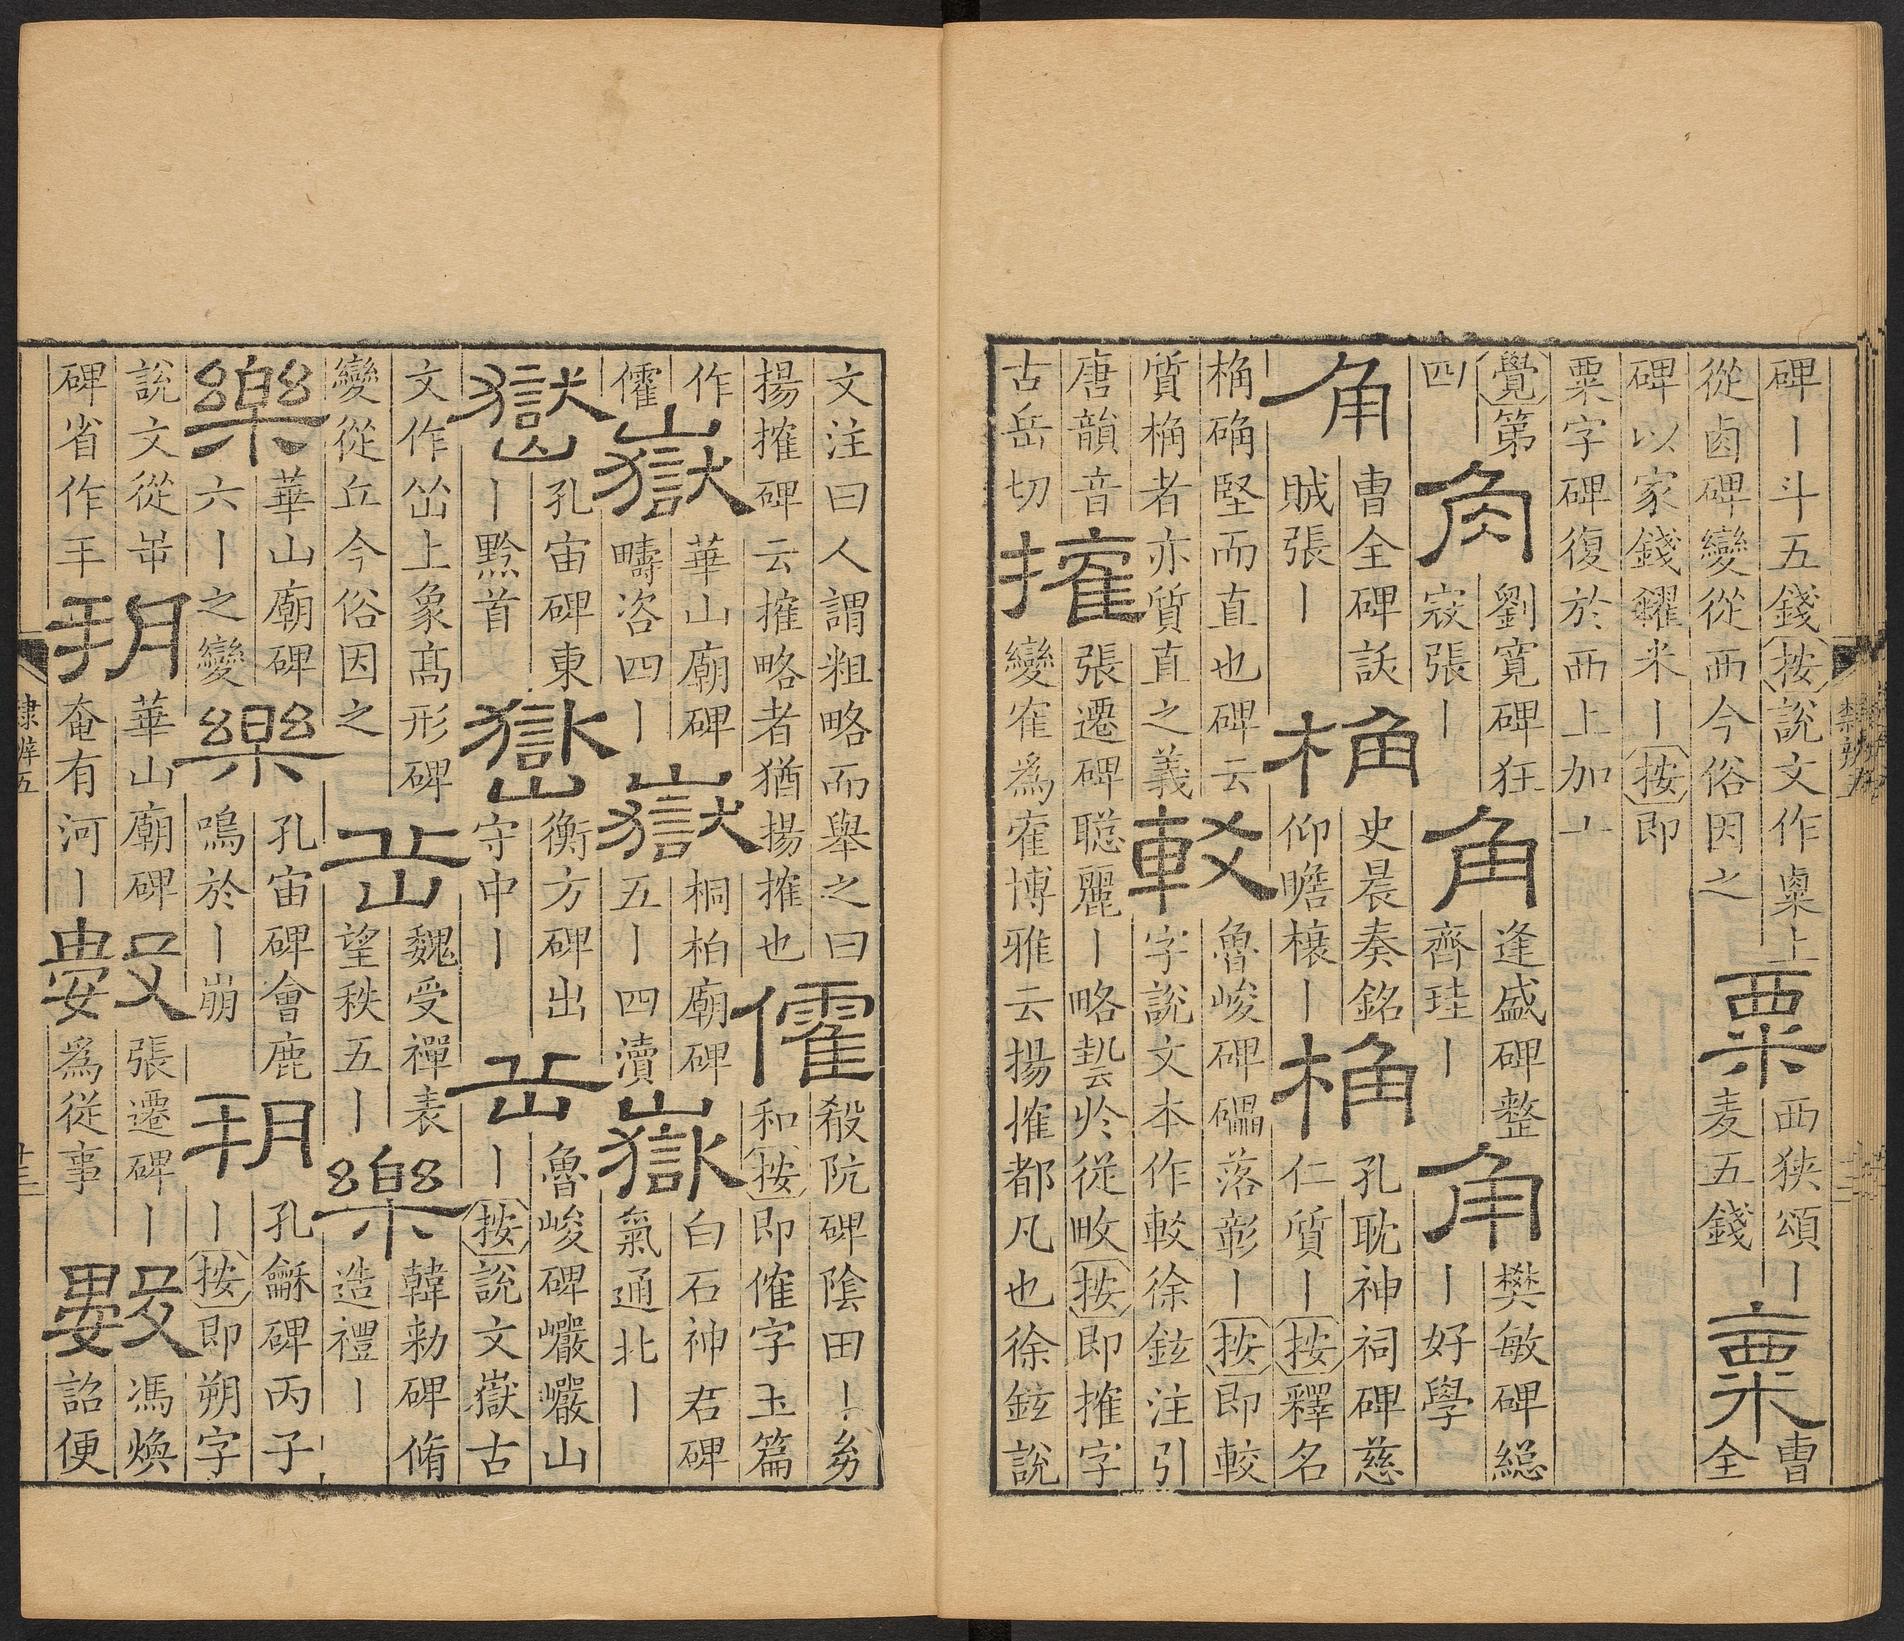 碑丨斗五錢按說文作㮚上
從卤碑變從西今俗因之
粟
西狹頌丨
麦五錢
粟
曹
全
碑以家錢糴米丨按即
粟字碑復於西上加亠
覺第
四
角
劉寬碑狂
寇張丨
角
逢盛碑整
齊珪丨
角
樊敏碑緫
丨好學
角
曹全碑訞
賊張丨
桷
史晨奏銘
仰瞻榱丨
桷
孔耽神祠碑慈
仁質丨按釋名
桷确堅而直也碑云
質桷者亦質直之義
較
魯峻碑礧落彰丨按即較
字說文本作較徐鉉注引
唐韻音
古岳切
搉
張遷碑聡麗丨略埶於従畋按即搉字
變隺為寉博雅云揚搉都凡也徐鉉說
隸辨五
文注曰人謂粗略而舉之曰
揚搉碑云搉略者猶揚搉也
傕
殽阬碑陰田丨
和按即傕字玉篇
作
傕
嶽
華山廟碑
疇咨四丨
嶽
桐柏廟碑
五丨四瀆
嶽
白石神君碑
氣通北丨
嶽
孔宙碑東
丨黔首
嶽
衡方碑出
守中丨
岳
魯峻碑巗巗山
丨按說文嶽古
文作𡶳上象髙形碑
變從丘今俗因之
岳
魏受禪表
望秩五丨
樂
韓勑碑脩
造禮丨
樂
華山廟碑
六丨之變
樂
孔宙碑會鹿
鳴於丨崩
朔
孔龢碑丙子
丨按即朔字
說文從屰
碑省作手
朔
華山廟碑
奄有河丨
數
張遷碑丨
為従事
數
馮煥
詔便
隸辨五
十三